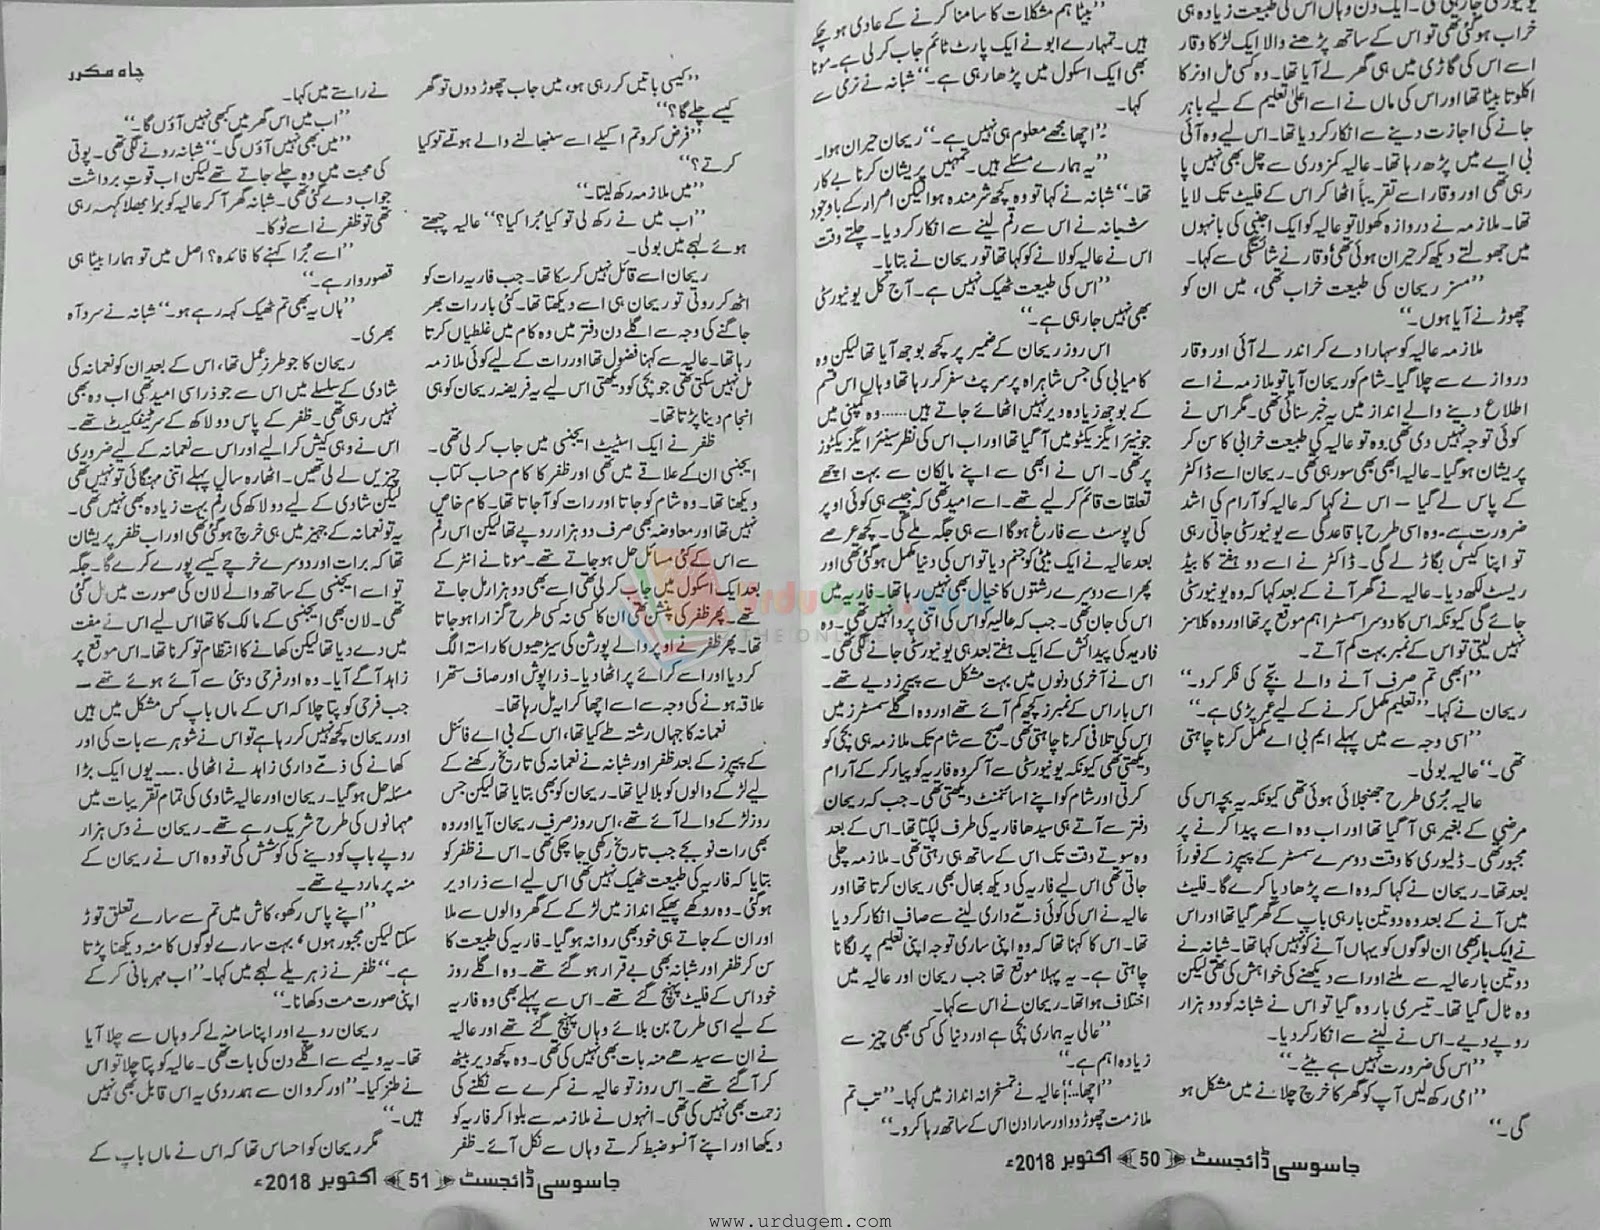 یونیورسٹی جا رہی تھی۔ ایک دن وہاں اس کی طبیعت زیادہ ہی
خراب ہو گئی تھی تو اس کے ساتھ پڑھنے والا ایک لڑکا وقار
اسے اس کی گاڑی میں ہی گھر لے آیا تھا۔ وہ کسی مل اونر کا
اکلوتا بیٹا تھا اور اس کی ماں نے اسے اعلیٰ تعلیم کے لیے باہر
جانے کی اجازت دینے سے انکار کر دیا تھا۔ اس لیے وہ آئی
بی اے میں پڑھ رہا تھا۔ عالیہ کمزوری سے چل بھی نہیں پا
رہی تھی اور وقار اسے تقریباً اٹھا کر اس کے فلیٹ تک لایا
تھا۔ ملازمہ نے دروازہ کھولا تو عالیہ کو ایک اجنبی کی بانہوں
میں جھولتے دیکھ کر حیران ہوئی تھی وقار نے شائستگی سے کہا۔
’’مسز ریحان کی طبیعت خراب تھی، میں ان کو
چھوڑنے آیا ہوں۔‘‘
ملازمہ عالیہ کو سہارا دے کر اندر لے آئی اور وقار
دروازے سے چلا گیا۔ شام کو ریحان آیا تو ملازمہ نے اسے
اطلاع دینے والے انداز میں یہ خبر سنائی تھی۔ مگر اس نے
کوئی توجہ نہیں دی تھی وہ تو عالیہ کی طبیعت خرابی کا سن کر
پریشان ہو گیا۔ عالیہ ابھی بھی سو رہی تھی۔ ریحان اسے ڈاکٹر
کے پاس لے گیا - اس نے کہا کہ عالیہ کو آرام کی اشد
ضرورت ہے، وہ اسی طرح باقاعدگی سے یونیورسٹی جاتی رہی
تو اپنا کیس بگاڑ لے گی۔ ڈاکٹر نے اسے دو ہفتے کا بیڈ
ریسٹ لکھ دیا۔ عالیہ نے گھر آنے کے بعد کہا کہ وہ یونیورسٹی
جائے گی کیونکہ اس کا دوسرا سمسٹر اہم موقع پر تھا اور وہ کلاسز
نہیں لیتی تو اس کے نمبر بہت کم آتے۔
’’ابھی تم صرف آنے والے بچّے کی فکر کرو۔‘‘
ریحان نے کہا۔ ’’تعلیم مکمل کرنے کے لیے عمر پڑی ہے۔‘‘
’’اسی وجہ سے میں پہلے ایم بی اے مکمل کرنا چاہتی
تھی۔‘‘ عالیہ بولی۔
عالیہ بُری طرح جھنجلائی ہوئی تھی کیونکہ یہ بچہ اس کی
مرضی کے بغیر ہی آ گیا تھا اور اب وہ اسے پیدا کرنے پر
مجبور تھی۔ ڈلیوری کا وقت دوسرے سمسٹر کے پیپرز کے فوراً
بعد تھا۔ ریحان نے کہا کہ وہ اسے پڑھا دیا کرے گا۔ فلیٹ
میں آنے کے بعد وہ دو تین بار ہی باپ کے گھر گیا تھا اور اس
نے ایک بار بھی ان لوگوں کو یہاں آنے کو نہیں کہا تھا۔ شبانہ نے
دو تین بار عالیہ سے ملنے اور اسے دیکھنے کی خواہش کی تھی لیکن
وہ ٹال گیا تھا۔ تیسری بار وہ گیا تو اس نے شبانہ کو دو ہزار
روپے دیے۔ اس نے لینے سے انکار کر دیا۔
’’اس کی ضرورت نہیں ہے بیٹے۔‘‘
’’امی رکھ لیں آپ کو گھر کا خرچ چلانے میں مشکل ہو
گی۔‘‘
’’بیٹا ہم مشکلات کا سامنا کرنے کے عادی ہو چکے
ہیں۔ تمہارے ابو نے ایک پارٹ ٹائم جاب کر لی ہے۔ مونا
بھی ایک اسکول میں پڑھا رہی ہے۔‘‘ شبانہ نے نرمی سے
کہا۔
’’اچھا مجھے معلوم ہی نہیں ہے۔‘‘ ریحان حیران ہوا۔
’’یہ ہمارے مسئلے ہیں۔ تمہیں پریشان کرنا بے کار
تھا۔‘‘ شبانہ نے کہا تو وہ کچھ شرمندہ ہوا لیکن اصرار کے باوجود
شبانہ نے اس سے رقم لینے سے انکار کر دیا۔ چلتے وقت
اس نے عالیہ کو لانے کو کہا تھا تو ریحان نے بتایا۔
’’اس کی طبیعت ٹھیک نہیں ہے۔ آج کل یونیورسٹی
بھی نہیں جا رہی ہے۔‘‘
اس روز ریحان کے ضمیر پر کچھ بوجھ آیا تھا لیکن وہ
کامیابی کی جس شاہراہ پر سرپٹ سفر کر رہا تھا وہاں اس قسم
کے بوجھ زیادہ دیر نہیں اٹھائے جاتے ہیں...... وہ کمپنی میں
جونیئر ایگزیکٹو میں آ گیا تھا اور اب اس کی نظر سینئر ایگزیکٹوز
پر تھی۔ اس نے ابھی سے اپنے مالکان سے بہت اچھے
تعلقات قائم کر لیے تھے۔ اسے امید تھی کہ جیسے ہی کوئی اوپر
کی پوسٹ سے فارغ ہو گا اسے ہی جگہ ملے گی۔ کچھ عرصے
بعد عالیہ نے ایک بیٹی کو جنم دیا تو اس کی دنیا مکمل ہو گئی تھی اور
پھر اسے دوسرے رشتوں کا خیال بھی نہیں رہا تھا۔ فاریہ میں
اس کی جان تھی۔ جب کہ عالیہ کو اس کی اتنی پروا نہیں تھی۔ وہ
فاریہ کی پیدائش کے ایک ہفتے بعد ہی یونیورسٹی جانے لگی تھی۔
اس نے آخری دنوں میں بہت مشکل سے پیپرز دیے تھے۔
اس بار اس کے نمبرز کچھ کم آئے تھے اور وہ اگلے سمسٹرز میں
اس کی تلافی کرنا چاہتی تھی۔ صبح سے شام تک ملازمہ ہی بچی کو
دیکھتی تھی کیونکہ یونیورسٹی سے آ کر وہ فاریہ کو پیار کر کے آرام
کرتی اور شام کو اپنے اسائنمنٹ دیکھتی تھی۔ جب کہ ریحان
دفتر سے آتے ہی سیدھا فاریہ کی طرف لپکتا تھا۔ اس کے بعد
وہ سوتے وقت تک اس کے ساتھ ہی رہتی تھی۔ ملازمہ چلی
جاتی تھی اس لیے فاریہ کی دیکھ بھال بھی ریحان کرتا تھا اور
عالیہ نے اس کی کوئی ذمّے داری لینے سے صاف انکار کر دیا
تھا۔ اس کا کہنا تھا کہ وہ اپنی ساری توجہ اپنی تعلیم پر لگانا
چاہتی ہے۔ یہ پہلا موقع تھا جب ریحان اور عالیہ میں
اختلاف ہوا تھا۔ ریحان نے اس سے کہا۔
’’عالی یہ ہماری بچی ہے اور دنیا کی کسی بھی چیز سے
زیادہ اہم ہے۔‘‘
’’اچھا...!‘‘ عالیہ نے تمسخرانہ انداز میں کہا۔ ’’تب تم
ملازمت چھوڑ دو اور سارا دن اس کے ساتھ رہا کرو۔‘‘
جاسوسی ڈائجسٹ ﴿50﴾ اکتوبر 2018ء
چاہ مکرر
’’کیسی باتیں کر رہی ہو، میں جاب چھوڑ دوں تو گھر
کیسے چلے گا؟‘‘
’’فرض کرو تم اکیلے اسے سنبھالنے والے ہوتے تو کیا
کرتے؟‘‘
’’میں ملازمہ رکھ لیتا۔‘‘
’’اب میں نے رکھ لی تو کیا بُرا کیا؟‘‘ عالیہ چبھتے
ہوئے لہجے میں بولی۔
ریحان اسے قائل نہیں کر سکا تھا۔ جب فاریہ رات کو
اٹھ کر روتی تو ریحان ہی اسے دیکھتا تھا۔ کئی بار رات بھر
جاگنے کی وجہ سے اگلے دن دفتر میں وہ کام میں غلطیاں کرتا
رہا تھا۔ عالیہ سے کہنا فضول تھا اور رات کے لیے کوئی ملازمہ
مل نہیں سکتی تھی جو بچی کو دیکھتی اس لیے یہ فریضہ ریحان کو ہی
انجام دینا پڑتا تھا۔
ظفر نے ایک اسٹیٹ ایجنسی میں جاب کر لی تھی۔
ایجنسی ان کے علاقے میں تھی اور ظفر کا کام حساب کتاب
دیکھنا تھا۔ وہ شام کو جاتا اور رات کو آ جاتا تھا۔ کام خاص
نہیں تھا اور معاوضہ بھی صرف دو ہزار روپے تھا لیکن اس رقم
سے اس کے کئی مسائل حل ہو جاتے تھے۔ مونا نے انٹر کے
بعد ایک اسکول میں جاب کر لی تھی اسے بھی دو ہزار مل جاتے
تھے۔ پھر ظفر کی پنشن تھی ان کا کسی نہ کسی طرح گزارا ہو جاتا
تھا۔ پھر ظفر نے اوپر والے پورشن کی سیڑھیوں کا راستہ الگ
کر دیا اور اسے کرائے پر اٹھا دیا۔ ذرا پوش اور صاف ستھرا
علاقہ ہونے کی وجہ سے اسے اچھا کرایہ مل رہا تھا۔
نعمانہ کا جہاں رشتہ طے کیا تھا، اس کے بی اے فائنل
کے پیپرز کے بعد ظفر اور شبانہ نے نعمانہ کی تاریخ رکھنے کے
لیے لڑکے والوں کو بلا لیا تھا۔ ریحان کو بھی بتایا تھا لیکن جس
روز لڑکے والے آئے تھے، اس روز صرف ریحان آیا اور وہ
بھی رات نو بجے جب تاریخ رکھی جا چکی تھی۔ اس نے ظفر کو
بتایا کہ فاریہ کی طبیعت ٹھیک نہیں تھی اس لیے اسے ذرا دیر
ہو گئی۔ وہ روکھے پھیکے انداز میں لڑکے کے گھر والوں سے ملا
اور ان کے جاتے ہی خود بھی روانہ ہو گیا۔ فاریہ کی طبیعت کا
سن کر ظفر اور شبانہ بھی بے قرار ہو گئے تھے۔ وہ اگلے روز
خود اس کے فلیٹ پہنچ گئے تھے۔ اس سے پہلے بھی وہ فاریہ
کے لیے اسی طرح بن بلائے وہاں پہنچ گئے تھے اور عالیہ
نے ان سے سیدھے منہ بات بھی نہیں کی تھی۔ وہ کچھ دیر بیٹھ
کر آ گئے تھے۔ اس روز تو عالیہ نے کمرے سے نکلنے کی
زحمت بھی نہیں کی تھی۔ انہوں نے ملازمہ سے بلوا کر فاریہ کو
دیکھا اور اپنے آنسو ضبط کرتے وہاں سے نکل آئے۔ ظفر
نے راستے میں کہا۔
’’اب میں اس گھر میں کبھی نہیں آؤں گا۔‘‘
’’میں بھی نہیں آؤں گی۔‘‘ شبانہ رونے لگی تھی۔ پوتی
کی محبت میں وہ چلے جاتے تھے لیکن اب قوتِ برداشت
جواب دے گئی تھی۔ شبانہ گھر آ کر عالیہ کو بُرا بھلا کہہ رہی
تھی تو ظفر نے اسے ٹوکا۔
’’اسے بُرا کہنے کا فائدہ؟ اصل میں تو ہمارا بیٹا ہی
قصوروار ہے۔‘‘
’’ہاں یہ بھی تم ٹھیک کہہ رہے ہو۔‘‘ شبانہ نے سرد آہ
بھری۔
ریحان کا جو طرزِ عمل تھا، اس کے بعد ان کو نعمانہ کی
شادی کے سلسلے میں اس سے جو ذرا سی امید تھی اب وہ بھی
نہیں رہی تھی۔ ظفر کے پاس دو لاکھ کے سرٹیفکیٹ تھے۔
اس نے وہی کیش کرا لیے اور اس سے نعمانہ کے لیے ضروری
چیزیں لے لی تھیں۔ اٹھارہ سال پہلے اتنی مہنگائی تو نہیں تھی
لیکن شادی کے لیے دو لاکھ کی رقم بہت زیادہ بھی نہیں تھی۔
یہ تو نعمانہ کے جہیز میں ہی خرچ ہو گئی تھی اور اب ظفر پریشان
تھا کہ برات اور دوسرے خرچے کیسے پورے کرے گا۔ جگہ
تو اسے ایجنسی کے ساتھ والے لان کی صورت میں مل گئی
تھی۔ لان بھی ایجنسی کے مالک کا تھا اس لیے اس نے مفت
میں دے دیا تھا لیکن کھانے کا انتظام تو کرنا تھا۔ اس موقع پر
زاہد آگے آیا۔ وہ اور فرحی دبئی سے آئے ہوئے تھے -
جب فرحی کو پتا چلا کہ اس کے ماں باپ کس مشکل میں ہیں
اور ریحان کچھ نہیں کر رہا ہے تو اس نے شوہر سے بات کی اور
کھانے کی ذمّے داری زاہد نے اٹھا لی .... یوں ایک بڑا
مسئلہ حل ہو گیا۔ ریحان اور عالیہ شادی کی تمام تقریبات میں
مہمانوں کی طرح شریک رہے تھے۔ ریحان نے دس ہزار
روپے باپ کو دینے کی کوشش کی تو وہ اس نے ریحان کے
منہ پر مار دیے تھے۔
’’اپنے پاس رکھو، کاش میں تم سے سارے تعلق توڑ
سکتا لیکن مجبور ہوں، بہت سارے لوگوں کا منہ دیکھنا پڑتا
ہے۔‘‘ ظفر نے زہریلے لہجے میں کہا۔ ’’اب مہربانی کر کے
اپنی صورت مت دکھانا۔‘‘
ریحان روپے اور اپنا سا منہ لے کر وہاں سے چلا آیا
تھا۔ یہ ولیمے سے اگلے دن کی بات تھی۔ عالیہ کو پتا چلا تو اس
نے طنز کیا۔ ’’اور کرو ان سے ہمدردی یہ اس قابل بھی نہیں
ہیں۔‘‘
مگر ریحان کو احساس تھا کہ اس نے ماں باپ کے
جاسوسی ڈائجسٹ ﴿51﴾ اکتوبر 2018ء
UrduGem.com
THE ONLINE LIBRARY
www.urdugem.com